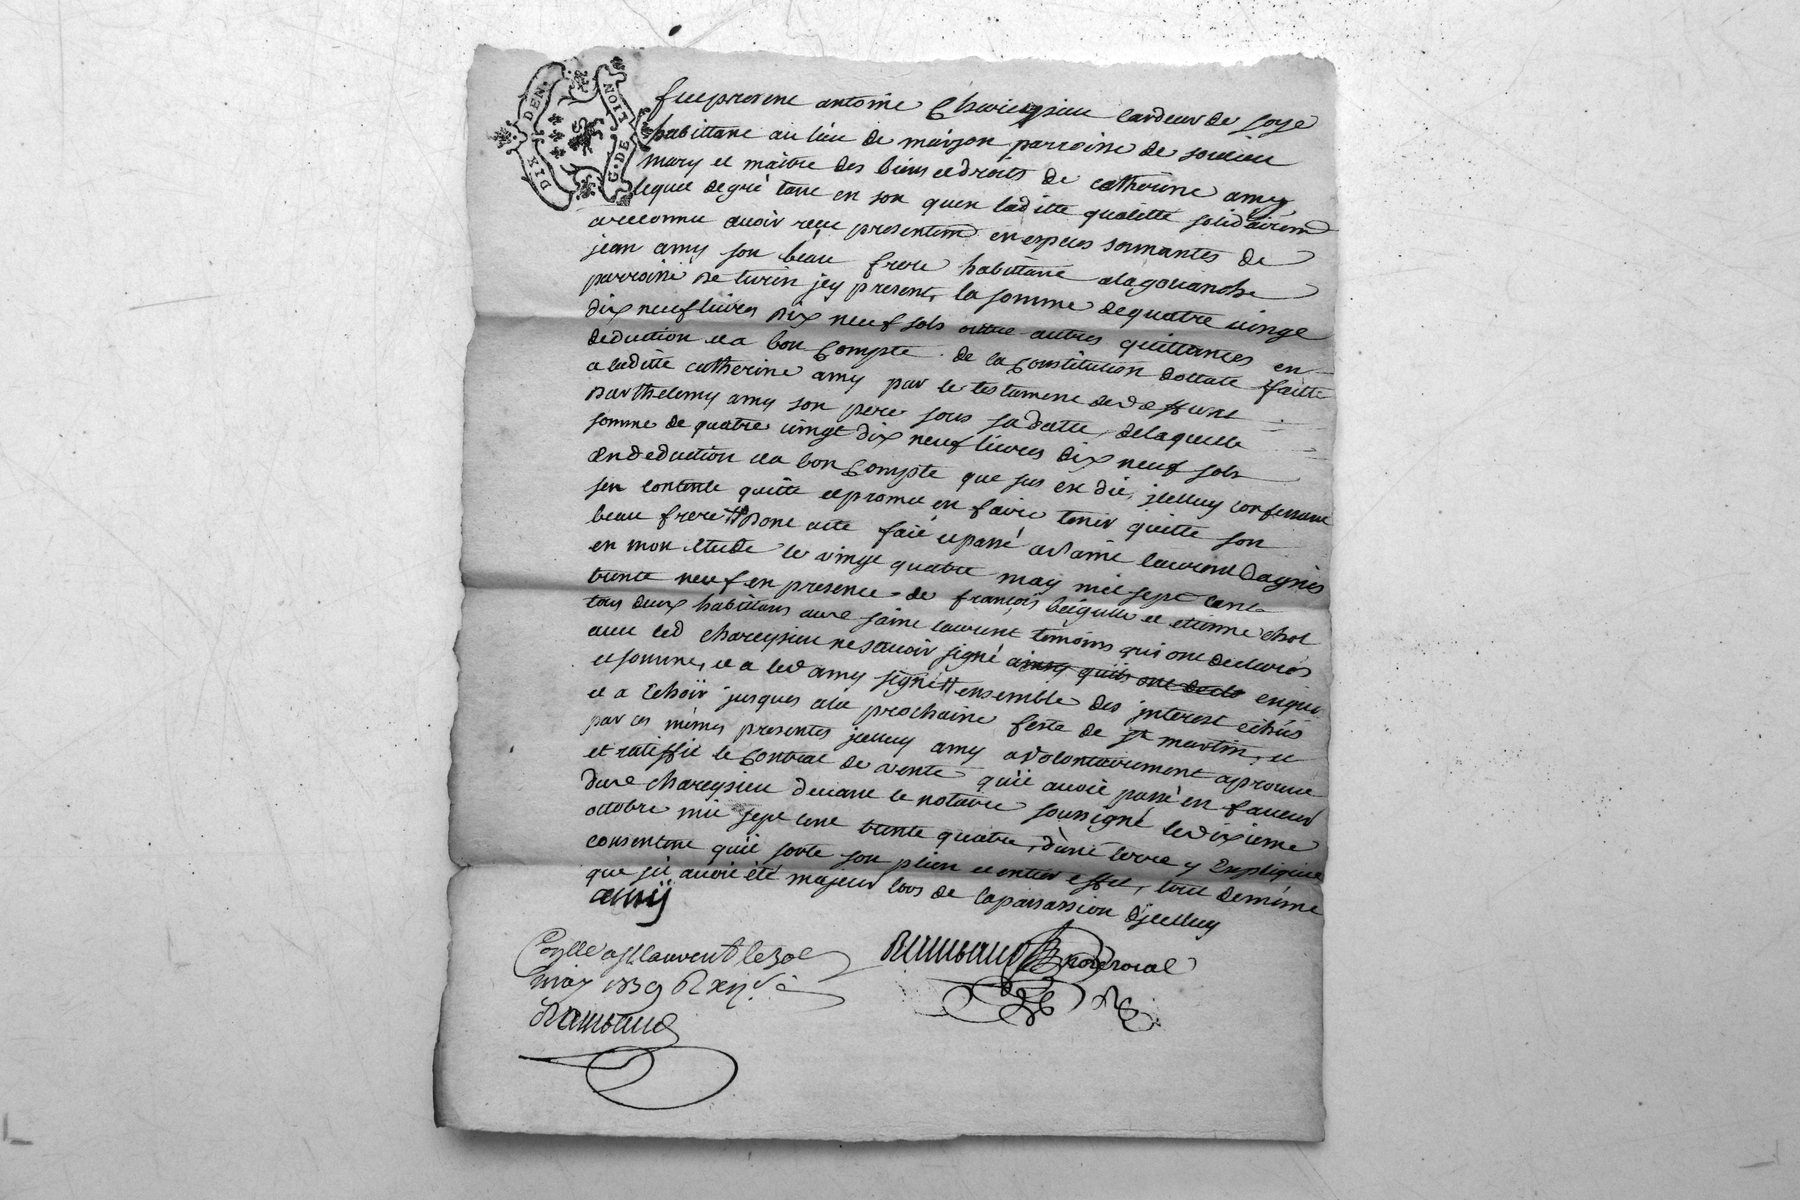 DIX DEN.
G. DE LION
fut present antoine Chareysieu cardeur de soye
habittant au lieu de maizon parroisse de soucieu
mary et maitre des biens et droits de catherine amy
lequel de gré tant en son quen laditte qualitté solidairemt
a reconnu avoir reçu presentemt en especes sonnantes de
jean amy son beau frere habittant alagouanche
parroisse de turin jcy present, la somme de quatre vingt
dix neuf livres dix neuf sols outre autres quittances en
deduction et a bon Compte de la Constitution dottale faitte
a laditte catherine amy par le testament de deffunt
Barthelemy amy son pere sous sa datte, de laquelle
somme de quatre vingt dix neuf livres dix neuf sols
en deduction et a bon Compte que sus est dit, jcelluy confessant
sen contente quitte et promet en faire tenir quitte son
beau frere # Dont acte fait et passé a st laurent Dagnis
en mon Etude le vingt quatre may mil sept cent
trente neuf en presence de françois et etienne chol
tous deux habittans aud saint laurent temoins qui ont declarés
avec led chareysieu ne sçavoir signé ainsy quils ont decla enquis
et sommés, et a led amy signé # ensemble des jnterest echûs
et a Echoir jusques ala prochaine feste de st martin, et
par ces mêmes presentes jcelluy amy a volontairement aprouvé
et ratiffié le Contrat de vente quil avoit passé en faveur
dud chareysieu devant le notaire soussigné le dixieme
octobre mil sept cent trente quatre, d'une terre y Expliquée
consentant quil sorte son plein et entier effet, tout de même
que sil avoit été majeur lors de la passassion d'jcelluy
amÿ
Rambaud Nore roial
Conllé a St laurent le 30e
may 1739 R xij s
Rambaud